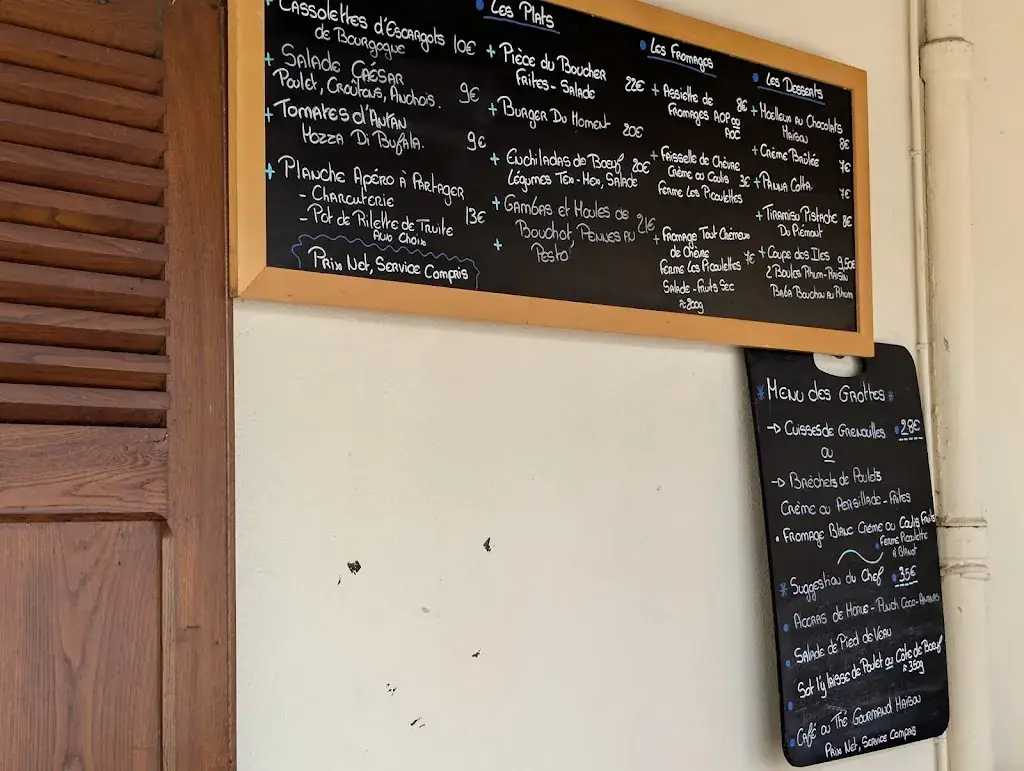 Cassolettes d'Escargots 10€
de Bourgogne
+ Salade César
Poulet, Croûtons, Anchois. 9€
+ Tomates d'Antan
Mozza Di Bufala. 9€
+ Planche Apéro à Partager
- Charcuterie
- Pot de Rillette de Truite 13€
Aux Choix
Prix Net, Service Compris
Les Plats
+ Pièce du Boucher
Frites - Salade 22€
+ Burger Du Moment 20€
+ Enchiladas de Boeuf 20€
Légumes Tex-Mex, Salade
+ Gambas et Moules de 21€
Bouchot, Pennes au
+ Pesto
Les Fromages
+ Assiette de 8€
Fromages AOP ou
AOC
+ Faisselle de Chèvre
Crème ou Coulis 3€
Ferme Les Picoulettes
+ Fromage Tout Crémeux
de Chèvre
Ferme Les Picoulettes
Salade - Fruits Sec
≈ 200g
Les Desserts
+ Moelleux au Chocolats
Maison 8€
+ Crème Brûlée 7€
+ Panna Cotta 7€
+ Tiramisu Pistache 8€
Du Piémont
+ Coupe des Iles 9,50€
2 Boules Rhum-Raisin
Baba Bouchon au Rhum
* Menu des Grottes *
→ Cuisses de Grenouilles 28€
ou
→ Bréchets de Poulets
Crème ou Persillade - Frites
• Fromage Blanc Crème ou Coulis Fruits
Ferme Picoulette
à Blanot
* Suggestion du Chef 35€
Accras de Morue - Punch Coco-Ananas
Salade de Pied de Veau
Sot l'y laisse de Poulet ou Côte de Boeuf
≈ 350g
Café ou Thé Gourmand Maison
Prix Net, Service Compris